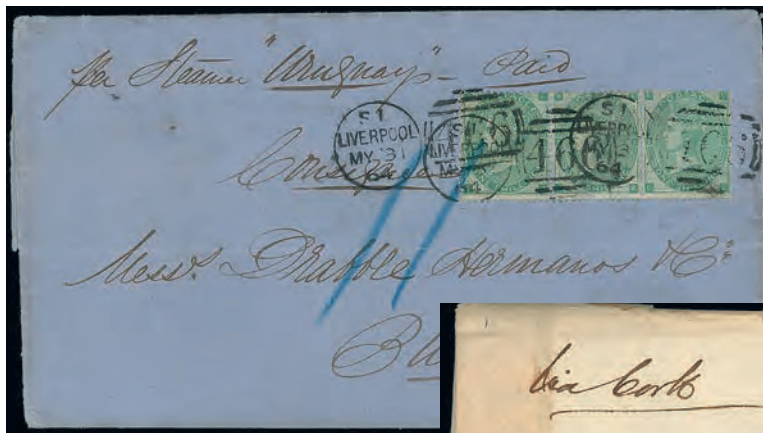 per Steamer "Uruguay" - Paid
S1
LIVERPOOL
MY 31
64
LIVERPOOL
466
S1
LIVERPOOL
64
Messrs. Drabble Hermanos & Co:
via Cork